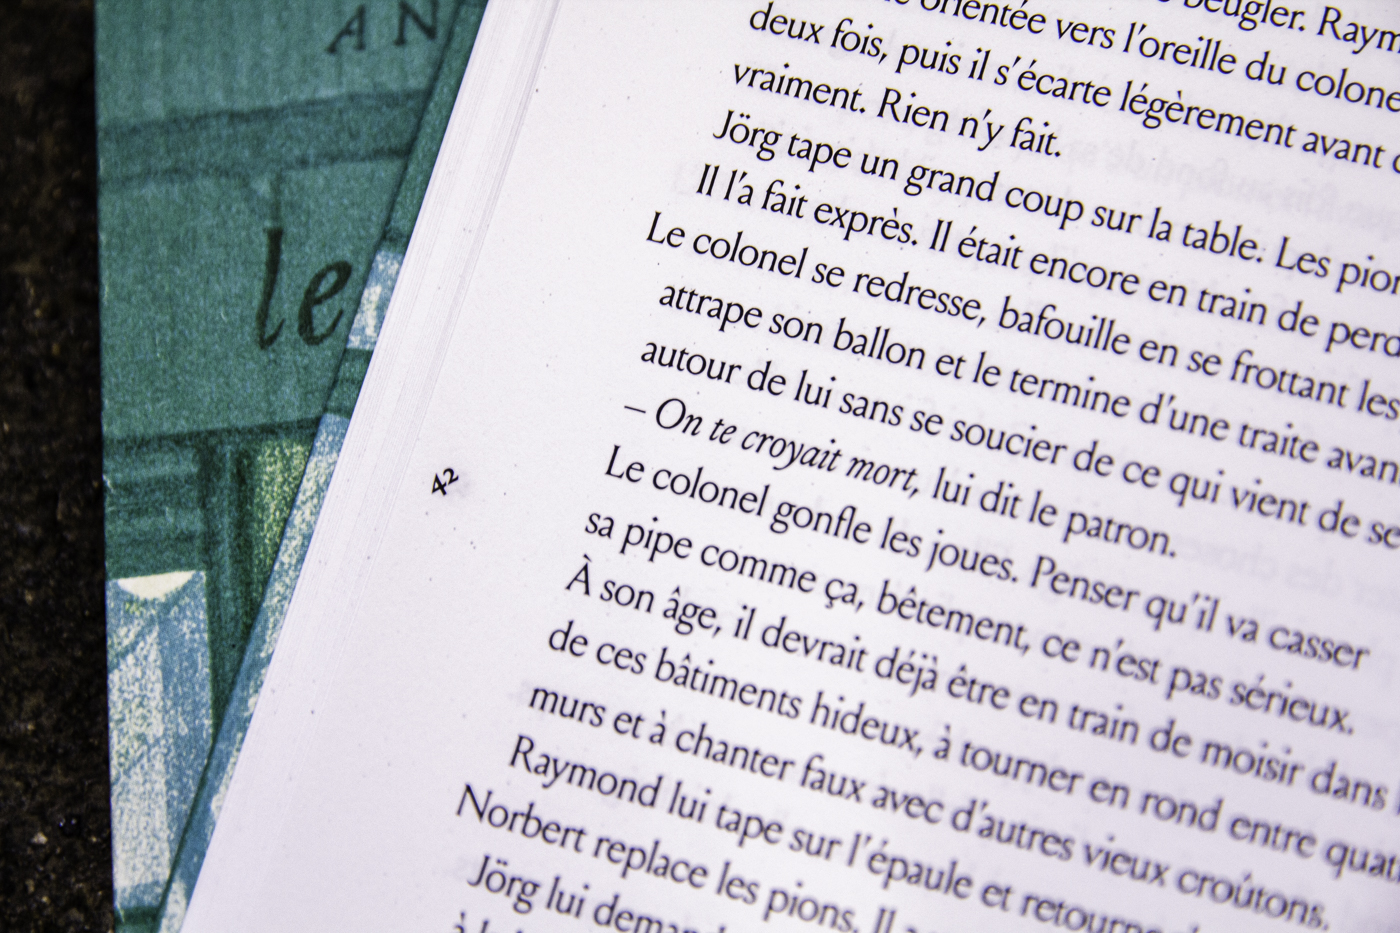 AN
le
beugler. Raym
orientée vers l'oreille du colone
deux fois, puis il s'écarte légèrement avant
vraiment. Rien n'y fait.
Jörg tape un grand coup sur la table. Les pion
Il l'a fait exprès. Il était encore en train de perd
Le colonel se redresse, bafouille en se frottant les
attrape son ballon et le termine d'une traite avan
autour de lui sans se soucier de ce qui vient de se
– On te croyait mort, lui dit le patron.
Le colonel gonfle les joues. Penser qu'il va casser
sa pipe comme ça, bêtement, ce n'est pas sérieux.
À son âge, il devrait déjà être en train de moisir dans
de ces bâtiments hideux, à tourner en rond entre quat
murs et à chanter faux avec d'autres vieux croûtons.
Raymond lui tape sur l'épaule et retourne
Norbert replace les pions. Il
Jörg lui demand
42